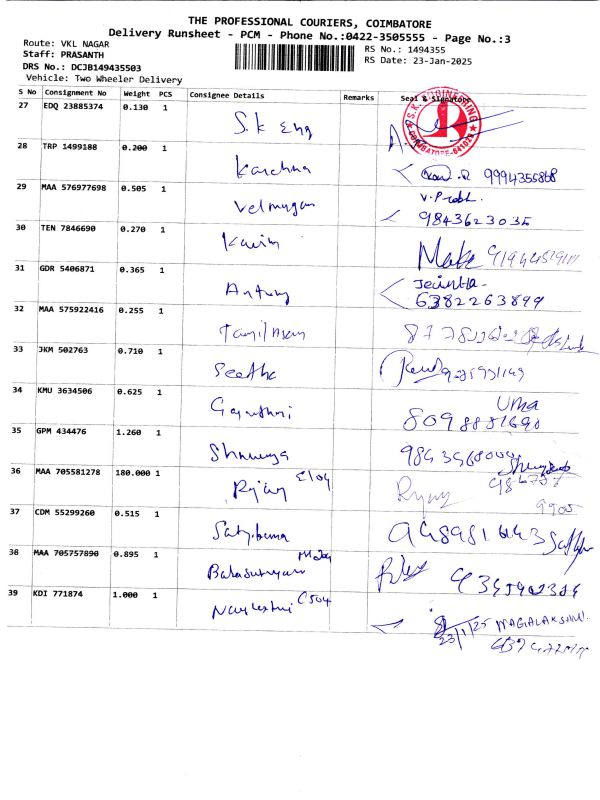 THE PROFESSIONAL COURIERS, COIMBATORE
Delivery Runsheet - PCM - Phone No.:0422-3505555 - Page No.:3
Route: VKL NAGAR
Staff: PRASANTH
DRS No.: DCJB149435503
Vehicle: Two Wheeler Delivery
RS No.: 1494355
RS Date: 23-Jan-2025
S No Consignment No Weight PCS Consignee Details Remarks Seal & Signature
27 EDQ 23885374 0.130 1 S.K Eng
28 TRP 1499188 0.200 1 Karchna 9994355868
29 MAA 576977698 0.505 1 Velmugan V. Prabh. 9843623035
30 TEN 7846690 0.270 1 Kavin
31 GDR 5406871 0.365 1 Antony Jecintha- 6382263899
32 MAA 575922416 0.255 1
33 JKM 502763 0.710 1 Seetha
34 KMU 3634506 0.625 1 Gayathri Uma 8098881690
35 GPM 434476 1.260 1
36 MAA 705581278 180.000 1
37 CDM 55299260 0.515 1
38 MAA 705757890 0.895 1
39 KDI 771874 1.000 1 C504 23/1/25 NAGALAKSHMI